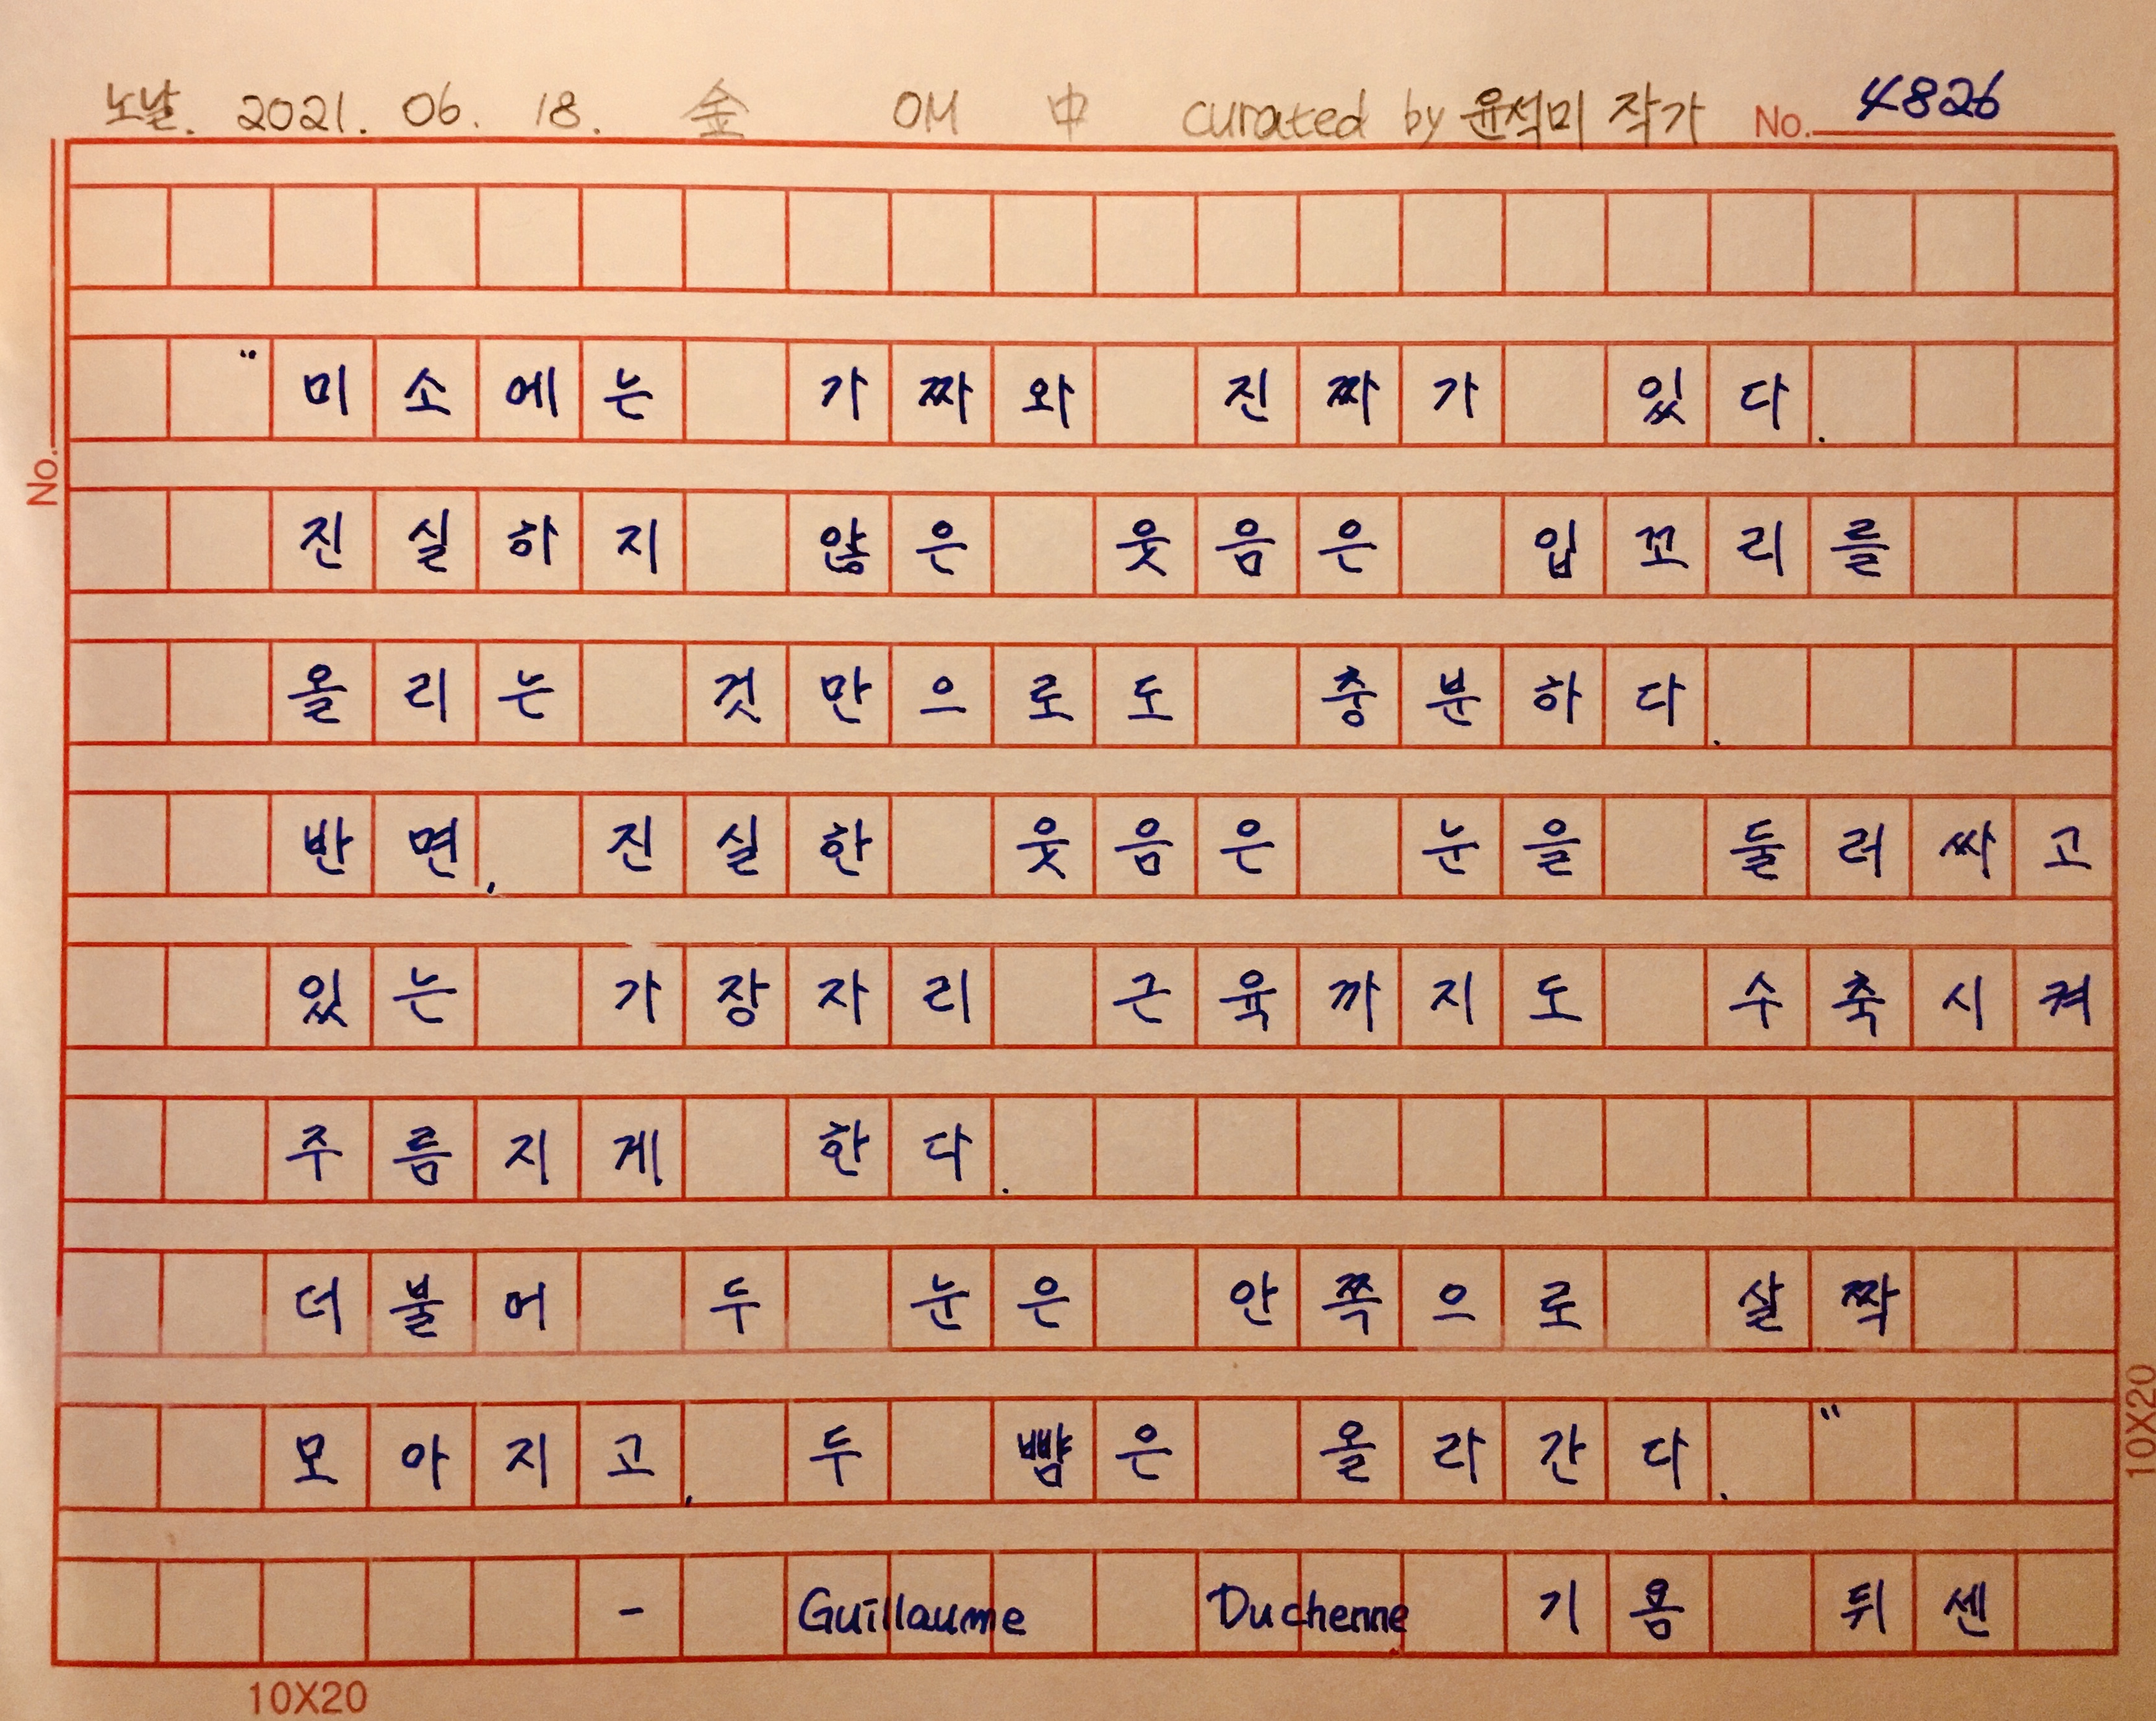 노날. 2021. 06. 18. 金 OM 中 curated by 윤석미 작가 No. 4826
No.
"미소에는 가짜와 진짜가 있다.
진실하지 않은 웃음은 입꼬리를
올리는 것만으로도 충분하다.
반면, 진실한 웃음은 눈을 둘러싸고
있는 가장자리 근육까지도 수축시켜
주름지게 한다.
더불어 두 눈은 안쪽으로 살짝
모아지고, 두 뺨은 올라간다."
- Guillaume Duchenne 기욤 뒤센
10X20
10X20